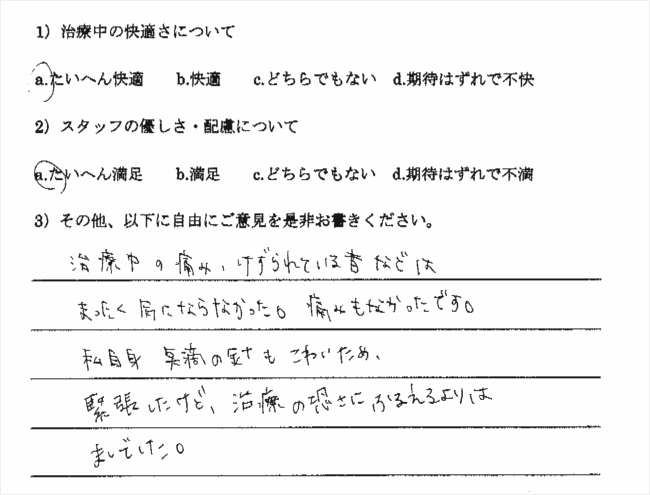 1) 治療中の快適さについて
a.たいへん快適 b.快適 c.どちらでもない d.期待はずれで不快
2) スタッフの優しさ・配慮について
a.たいへん満足 b.満足 c.どちらでもない d.期待はずれで不満
3) その他、以下に自由にご意見を是非お書きください。
治療中の痛み、けずられている音などは
まったく気にならなかった。痛みもなかったです。
私自身 点滴の針もこわいため、
緊張したけど、治療の恐さにふるえるよりは
ましでした。